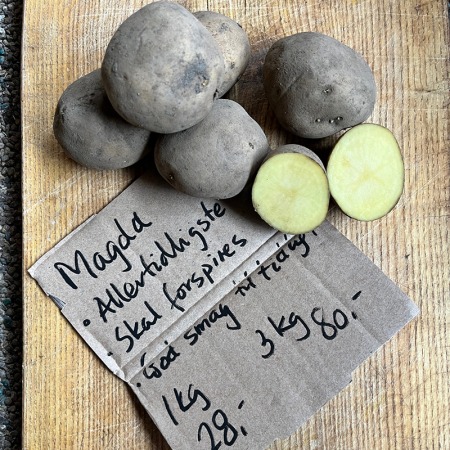 Magda
• Allertidligste
• Skal forspires
• God smag
1 kg
28,-
3 kg 80,-